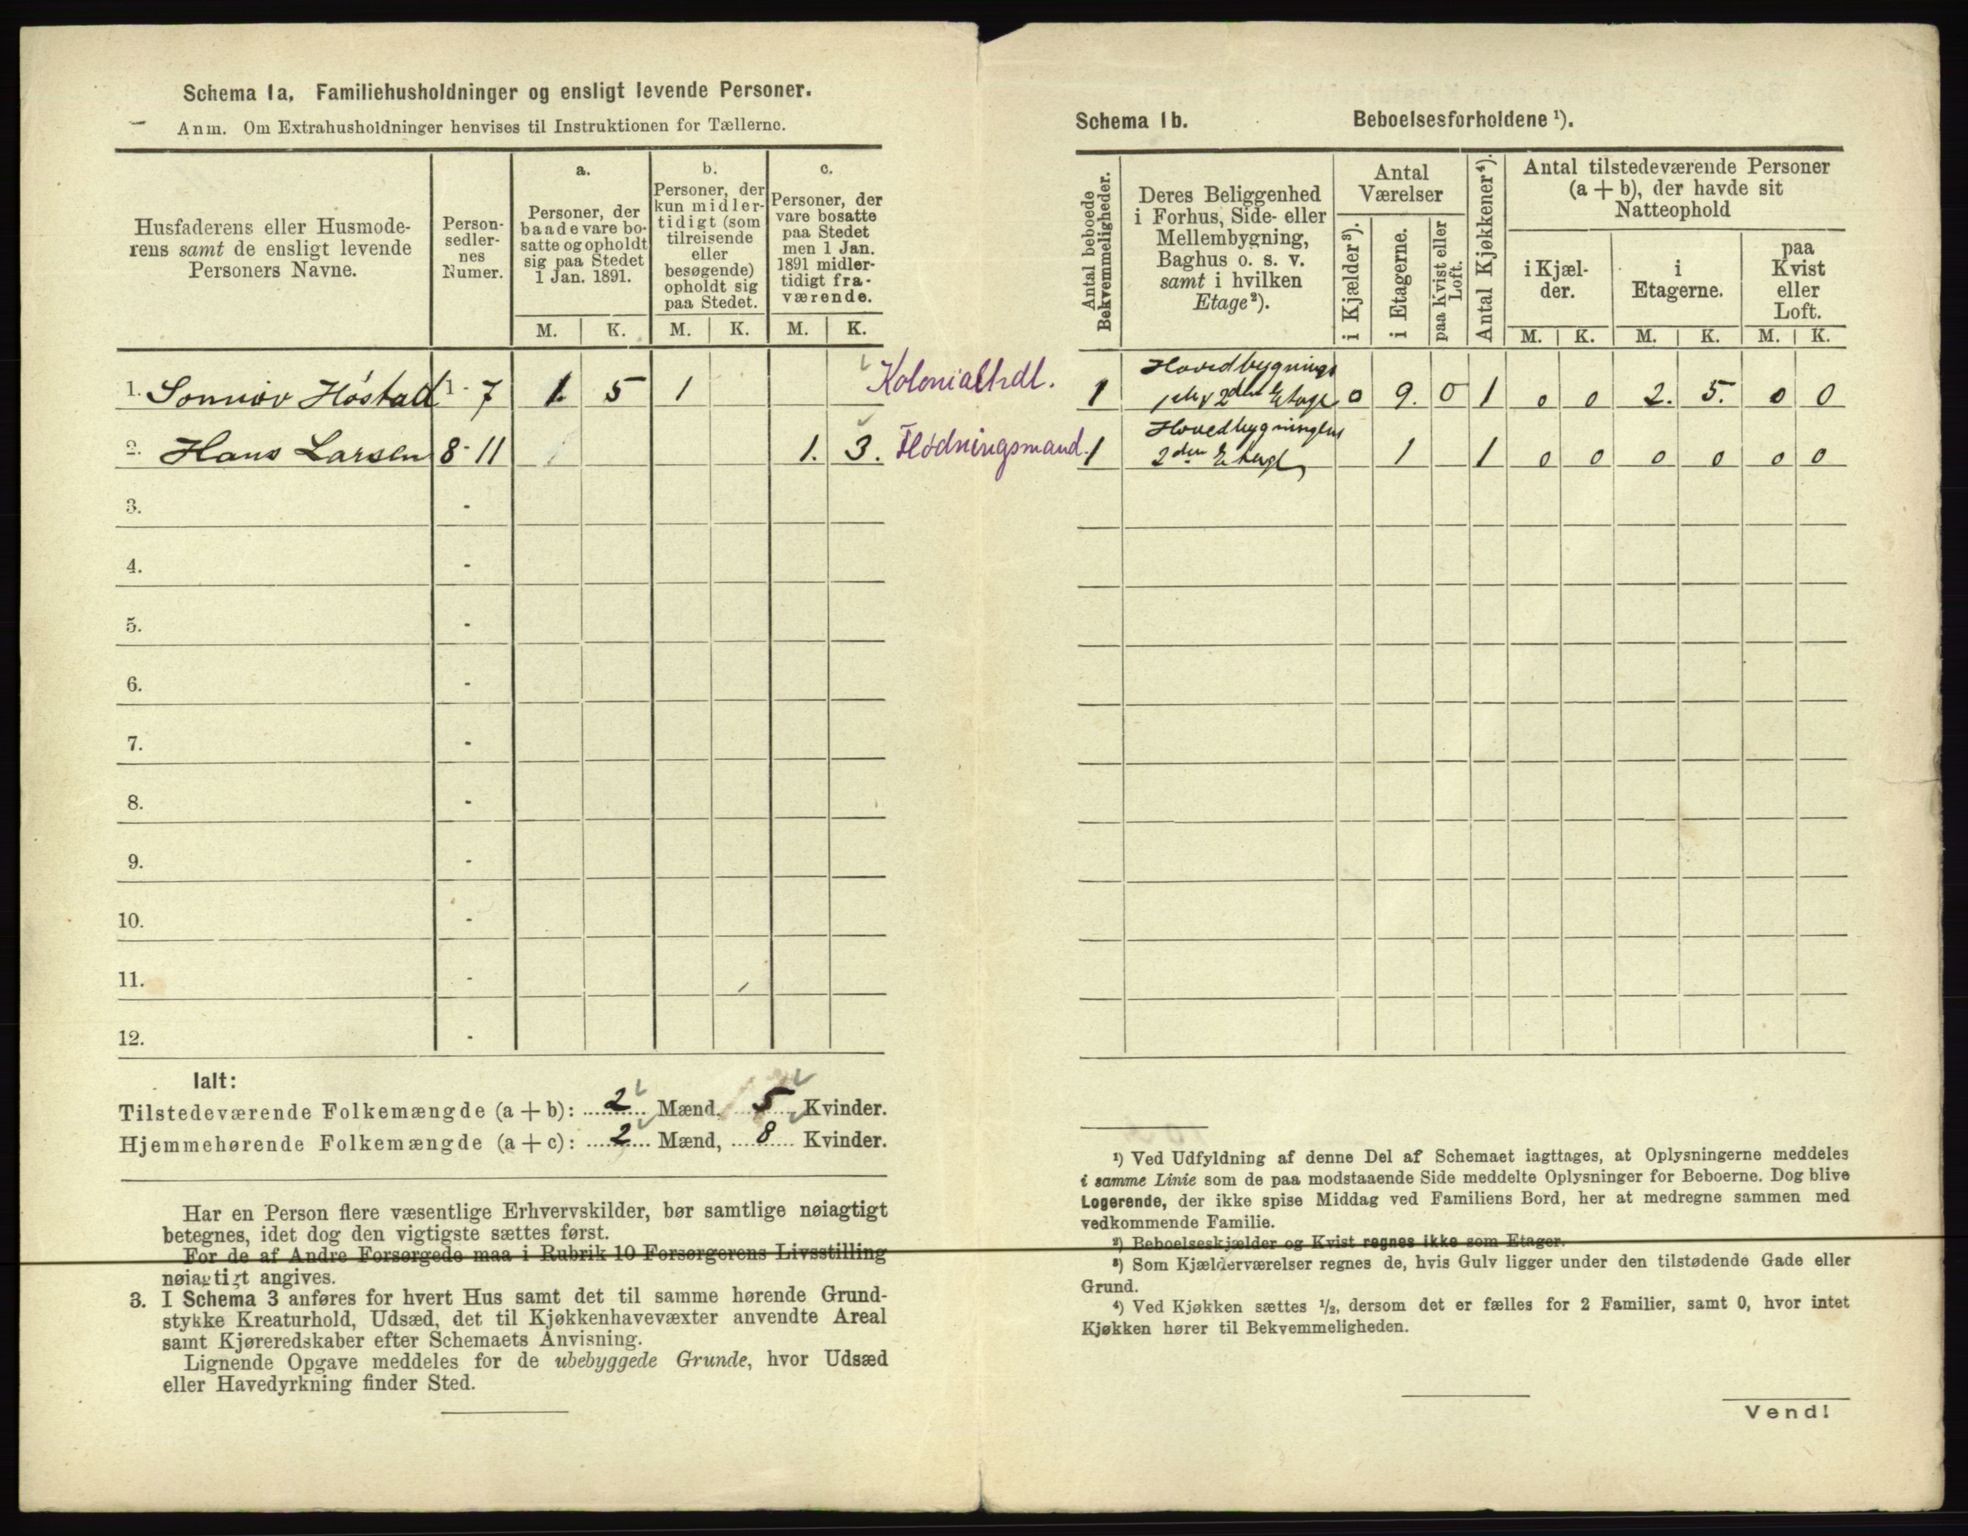 Schema 1a. Familiehusholdninger og ensligt levende Personer.
Anm. Om Extrahusholdninger henvises til Instruktionen for Tællerne.
Husfaderens eller Husmode-
rens samt de ensligt levende
Personers Navne.
Person-
sedler-
nes
Numer.
a.
Personer, der
baade vare bo-
satte og opholdt
sig paa Stedet
1 Jan. 1891.
b.
Personer, der
kun midler-
tidigt (som
tilreisende
eller
besøgende)
opholdt sig
paa Stedet.
c.
Personer, der
vare bosatte
paa Stedet
men 1 Jan.
1891 midler-
tidigt fra-
værende.
M. K. M. K. M. K.
1. Høstad 1-7 1. 5 1 Kolonialhdl.
2. Hans Larsen 8-11 1. 3. Flødningsmand.
3. -
4. -
5. -
6. -
7. -
8. -
9. -
10. -
11. -
12. -
Ialt:
Tilstedeværende Folkemængde (a + b): 2 Mænd, 5 Kvinder.
Hjemmehørende Folkemængde (a + c): 2 Mænd, 8 Kvinder.
Har en Person flere væsentlige Erhvervskilder, bør samtlige nøiagtigt
betegnes, idet dog den vigtigste sættes først.
For de af Andre Forsørgede maa i Rubrik 10 Forsørgerens Livsstilling
nøiagtigt angives.
3. I Schema 3 anføres for hvert Hus samt det til samme hørende Grund-
stykke Kreaturhold, Udsæd, det til Kjøkkenhavevæxter anvendte Areal
samt Kjøreredskaber efter Schemaets Anvisning.
Lignende Opgave meddeles for de ubebyggede Grunde, hvor Udsæd
eller Havedyrkning finder Sted.
Schema 1b. Beboelsesforholdene ¹).
Antal beboede
Bekvemmeligheder.
Deres Beliggenhed
i Forhus, Side- eller
Mellembygning,
Baghus o. s. v.
samt i hvilken
Etage²).
Antal
Værelser
i Kjælder³).
i Etagerne.
paa Kvist eller
Loft.
Antal Kjøkkener⁴).
Antal tilstedeværende Personer
(a + b), der havde sit
Natteophold
i Kjæl-
der.
i
Etagerne.
paa
Kvist
eller
Loft.
M. K. M. K. M. K.
1 Hovedbygnings 2den Etage 0 9. 0 1 0 0 2. 5. 0 0
1 Hovedbygningens 2den Etage 1 1 0 0 0 0 0 0
¹) Ved Udfyldning af denne Del af Schemaet iagttages, at Oplysningerne meddeles
i samme Linie som de paa modstaaende Side meddelte Oplysninger for Beboerne. Dog blive
Logerende, der ikke spise Middag ved Familiens Bord, her at medregne sammen med
vedkommende Familie.
²) Beboelseskjælder og Kvist regnes ikke som Etager.
³) Som Kjælderværelser regnes de, hvis Gulv ligger under den tilstødende Gade eller
Grund.
⁴) Ved Kjøkken sættes ½, dersom det er fælles for 2 Familier, samt 0, hvor intet
Kjøkken hører til Bekvemmeligheden.
Vend!